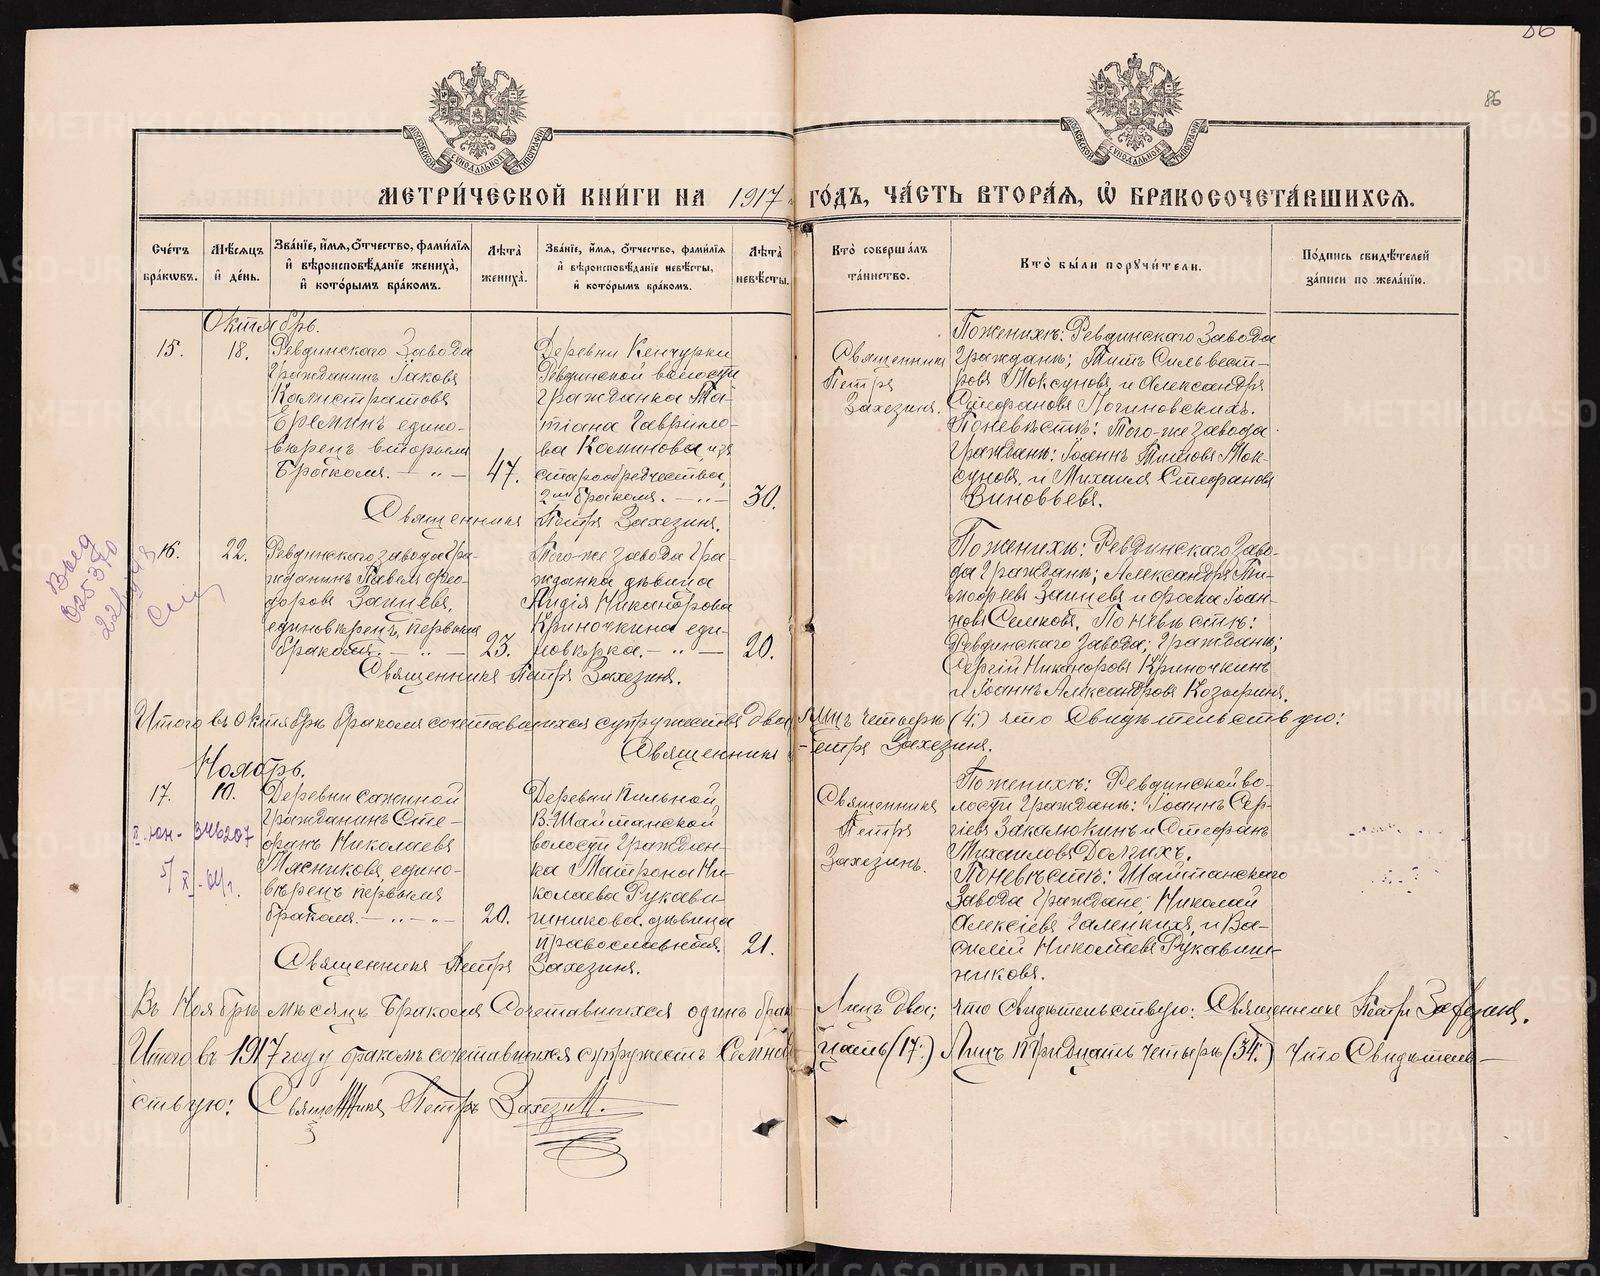 86
86
МЕТРИ́ЧЕСКОЙ КНИ́ГИ НА 1917 ГО́ДЪ, ЧА́СТЬ ВТОРА́Я, Ѽ БРАКОСОЧЕТА́ВШИХСЯ.
Сче́тъ бра́кѡвъ.
Мѣ́сяцъ и́ де́нь.
Зва́нїе, и́мя, ѻ́тчество, фами́лїя и́ вѣроисповѣ́данїе жениха̀, и́ кото́рымъ бра́комъ.
Лѣта̀ жениха̀.
Зва́нїе, и́мя, ѻ́тчество, фами́лїя и́ вѣроисповѣ́данїе невѣ́сты, и́ кото́рымъ бра́комъ.
Лѣта̀ невѣ́сты.
Кто̀ соверша́лъ та́инство.
Кто̀ бы́ли порꙋчи́тели.
По́дпись свидѣ́телей за́писи по жела́нїю.
Октябрь.
15.
18.
Ревдинскаго Завода
Гражданинъ Іаковъ
Калистратовъ
Еремин едино-
вѣрецъ вторымъ
бракомъ. — „ —
47.
Деревни Кенчурки
Ревдинской волости
гражданка Та-
тіана Гаврило-
ва Каминова, изъ
старообрядчества,
2мъ бракомъ. — „ —
30.
Священникъ
Петръ
Захезинъ.
По женихѣ: Ревдинскаго Завода
Граждане; Титъ Сильвест-
ровъ Моксуновъ и Александръ
Стефановъ Логиновскихъ.
По невѣстѣ: Того-же завода
Граждане: Іоаннъ Титовъ Мок-
суновъ, и Михаилъ Стефановъ
Виновьевъ.
Священникъ Петръ Захезинъ.
16.
22.
Ревдинскаго завода Гра-
жданинъ Павелъ Фео-
доровъ Зайцевъ,
единовѣрецъ, первымъ
бракомъ. — „ —
23.
Того-же завода Гра-
жданка дѣвица
Лидія Никанорова
Криночкина еди-
новѣрка. — „ —
20.
По женихѣ: Ревдинскаго Заво-
да Граждане; Александръ Ти-
мофеевъ Зайцевъ и Фока Іоан-
новъ Семковъ. По невѣстѣ:
Ревдинскаго Завода; Граждане;
Сергій Никаноровъ Криночкинъ
и Іоаннъ Александровъ Козыринъ.
Священникъ Петръ Захезинъ.
Итого въ Октябрѣ бракомъ сочетавшихся супружествъ два лицъ четыре (4.) что Свидѣтельствую:
Священникъ Петръ Захезинъ.
Ноябрь.
17.
10.
Деревни Сажиной
Гражданинъ Сте-
фанъ Николаевъ
Мясниковъ, едино-
вѣрецъ первымъ
бракомъ. — „ — „ —
20.
Деревни Пильной
В-Шайтанской
волости Граждан-
ка Матрона Ни-
колаева Рукави-
шникова, дѣвица
православная.
21.
Священникъ
Петръ
Захезинъ.
По женихѣ: Ревдинской во-
лости Граждане: Іоаннъ Сер-
гіевъ Закалюкинъ и Стефанъ
Михаиловъ Долгихъ.
По невѣстѣ: Шайтанскаго
Завода Граждане: Николай
Алексіевъ Галецкихъ, и Ва-
силій Николаевъ Рукавиш-
никовъ.
Священникъ Петръ Захезинъ.
Въ Ноябрѣ мѣсяцѣ Бракомъ Сочетавшихся одинъ бракъ Лицъ два; что Свидѣтельствую: Священникъ Петръ Захезинъ.
Итого въ 1917 году бракомъ сочетавшихся супружествъ Семнадцать (17.) Лицъ тридцать четыре (34.) что Свидѣтель-
ствую: Священникъ Петръ Захезинъ.
II-ЮН- 346207
5/XI-64г.
METRIKI.GASO-URAL.RU